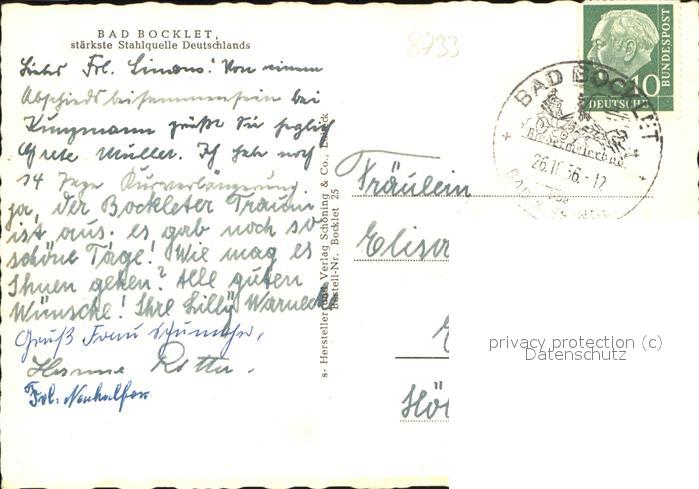 BAD BOCKLET,
stärkste Stahlquelle Deutschlands
8733
Liebes Frl. Simons! Von einem
Abschiedsbeisammensein bei
Kunzmann grüßt Sie
Grete Müller. Ich habe noch
14 Tage Kurverlängerung.
ja, der Bockleter Traum
ist aus. es gab noch so
schöne Tage! Wie mag es
Ihnen gehen? Alle guten
Wünsche! Ihre Lilly Warneck
Gruß Frau
Hanne
Frl. Neuhalfen
s- Hersteller und Verlag Schöning & Co., Lübeck
Bestell-Nr. Bocklet 25
10
DEUTSCHE
BUNDESPOST
BAD BOCKLET
26.10.56.-12
Fräulein
Elisa
Höl
privacy protection (c)
Datenschutz